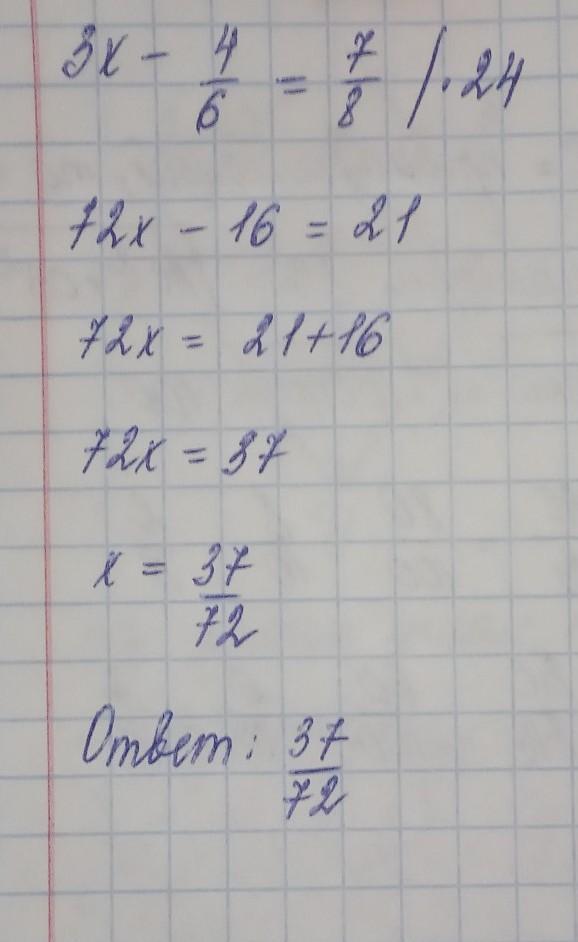 3x - 4/6 = 7/8 / · 24
72x - 16 = 21
72x = 21+16
72x = 37
x = 37/72
Ответ: 37/72